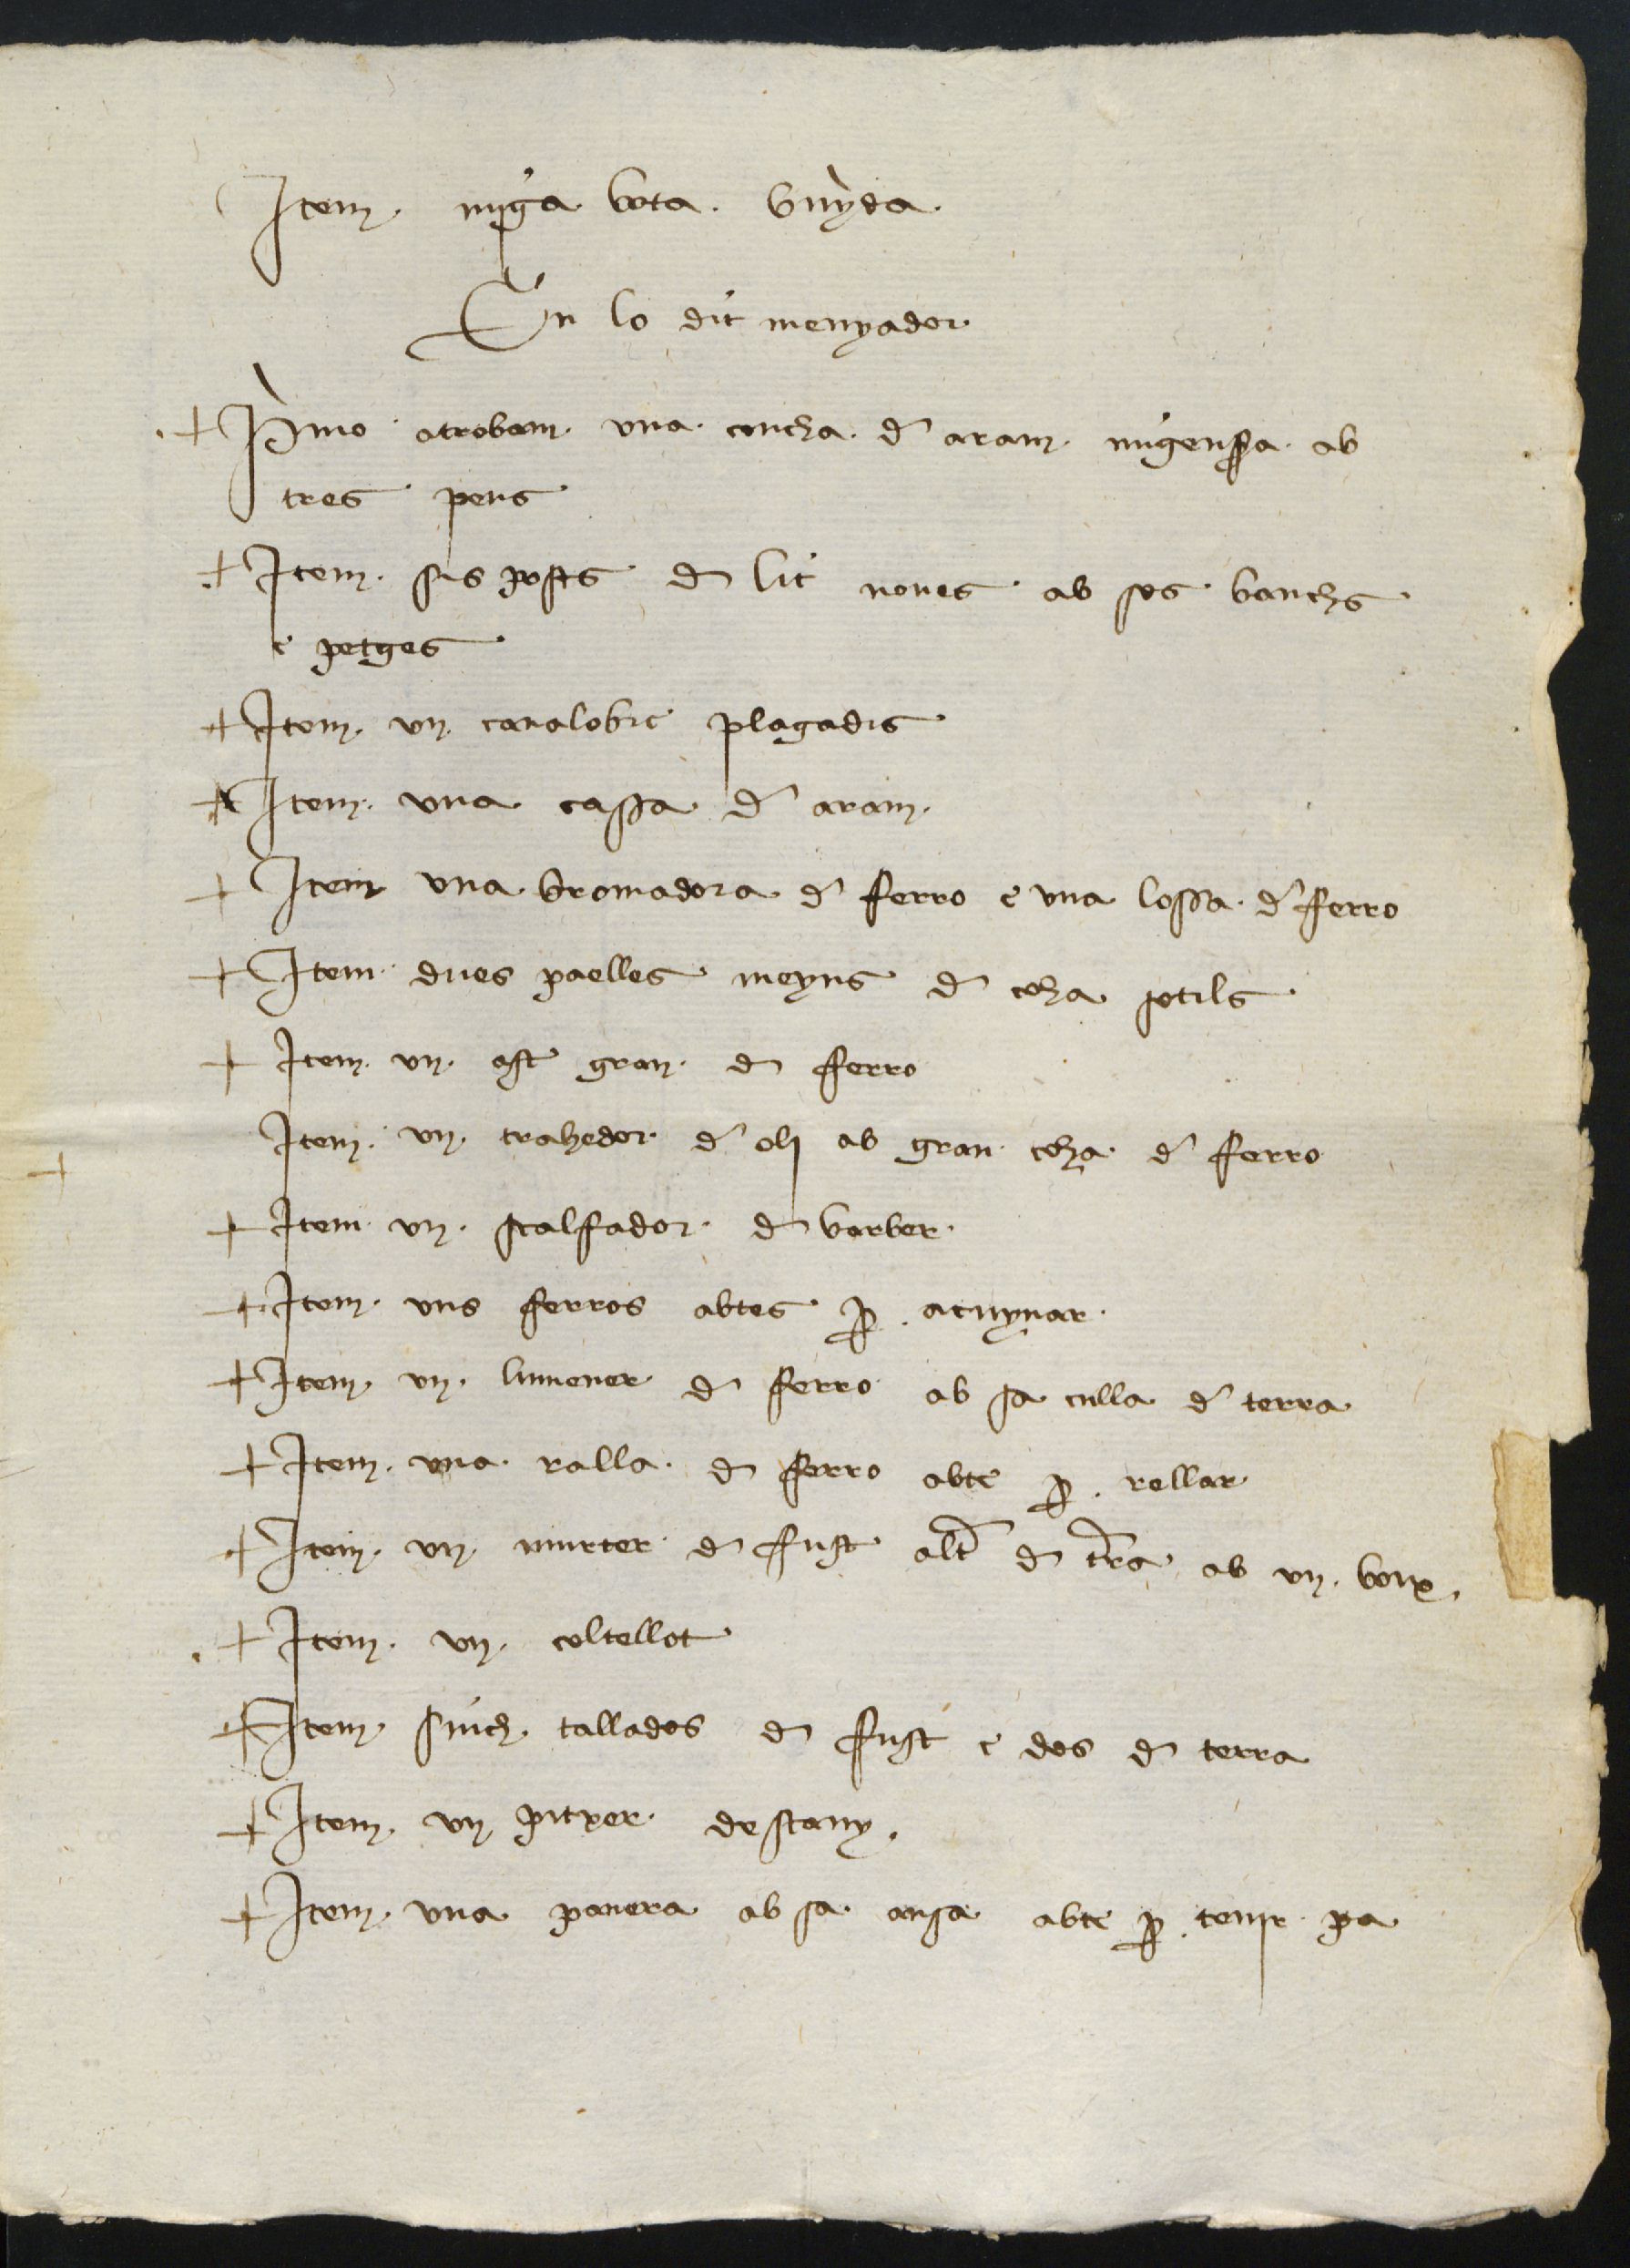 Item miga bota buyda
En lo dit menyador
+ Pimo atrobam una concha d aram migensera ab
tres peus
+ Item sis posts d lit noves ab sos banchs
e petges
+ Item un canalobre plagadis
+ Item una cassa d aram
+ Item una bromadora d ferro e una lossa d ferro
+ Item dues paelles meyns d coha sotils
+ Item un ast gran d ferro
+ Item un trahedor d oli ab gran coha d ferro
+ Item un scalfador d barber
+ Item uns ferros abtes p acuynar
+ Item un lumener d ferro ab sa culla d terra
+ Item una ralla d ferro abte p rellar
+ Item un murter d fust alt d tra ab un boux
+ Item un coltellot
+ Item sinch tallados d fust e dos d terra
+ Item un pitxer destany
+ Item una panera ab sa ansa abte p tenir pa